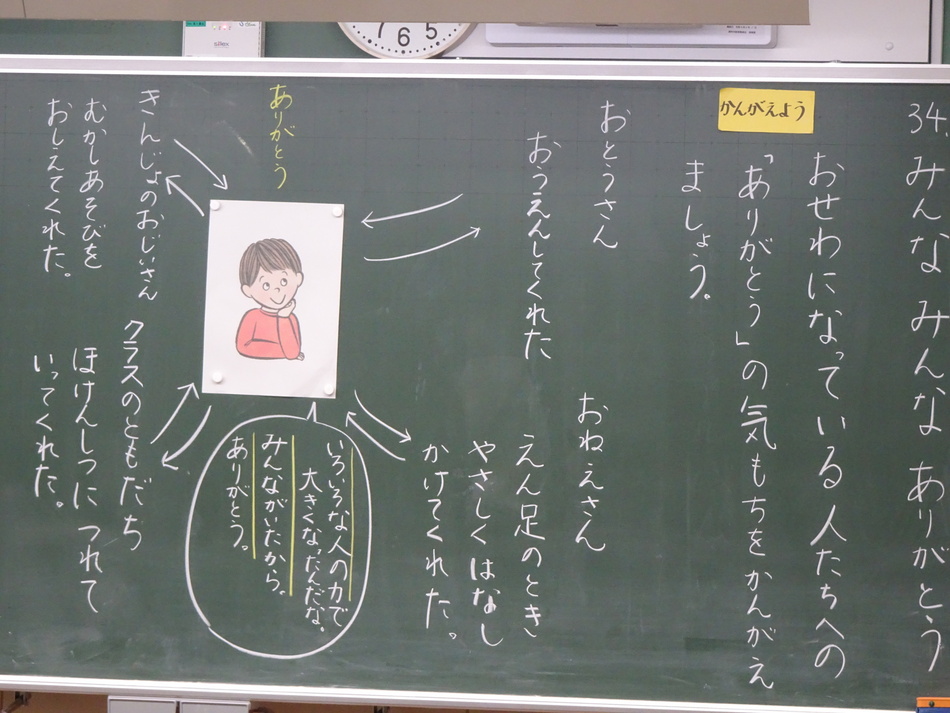 34. みんな みんな ありがとう
かんがえよう
おせわになっている人たちへの
「ありがとう」の気もちをかんがえ
ましょう。
おとうさん
おうえんしてくれた
おねえさん
えん足のとき
やさしくはなし
かけてくれた。
ありがとう
いろいろな人の力で
大きくなったんだな。
みんながいたから。
ありがとう。
きんじょのおじいさん
むかしあそびを
おしえてくれた。
クラスのともだち
ほけんしつに つれて
いってくれた。
6
5
7